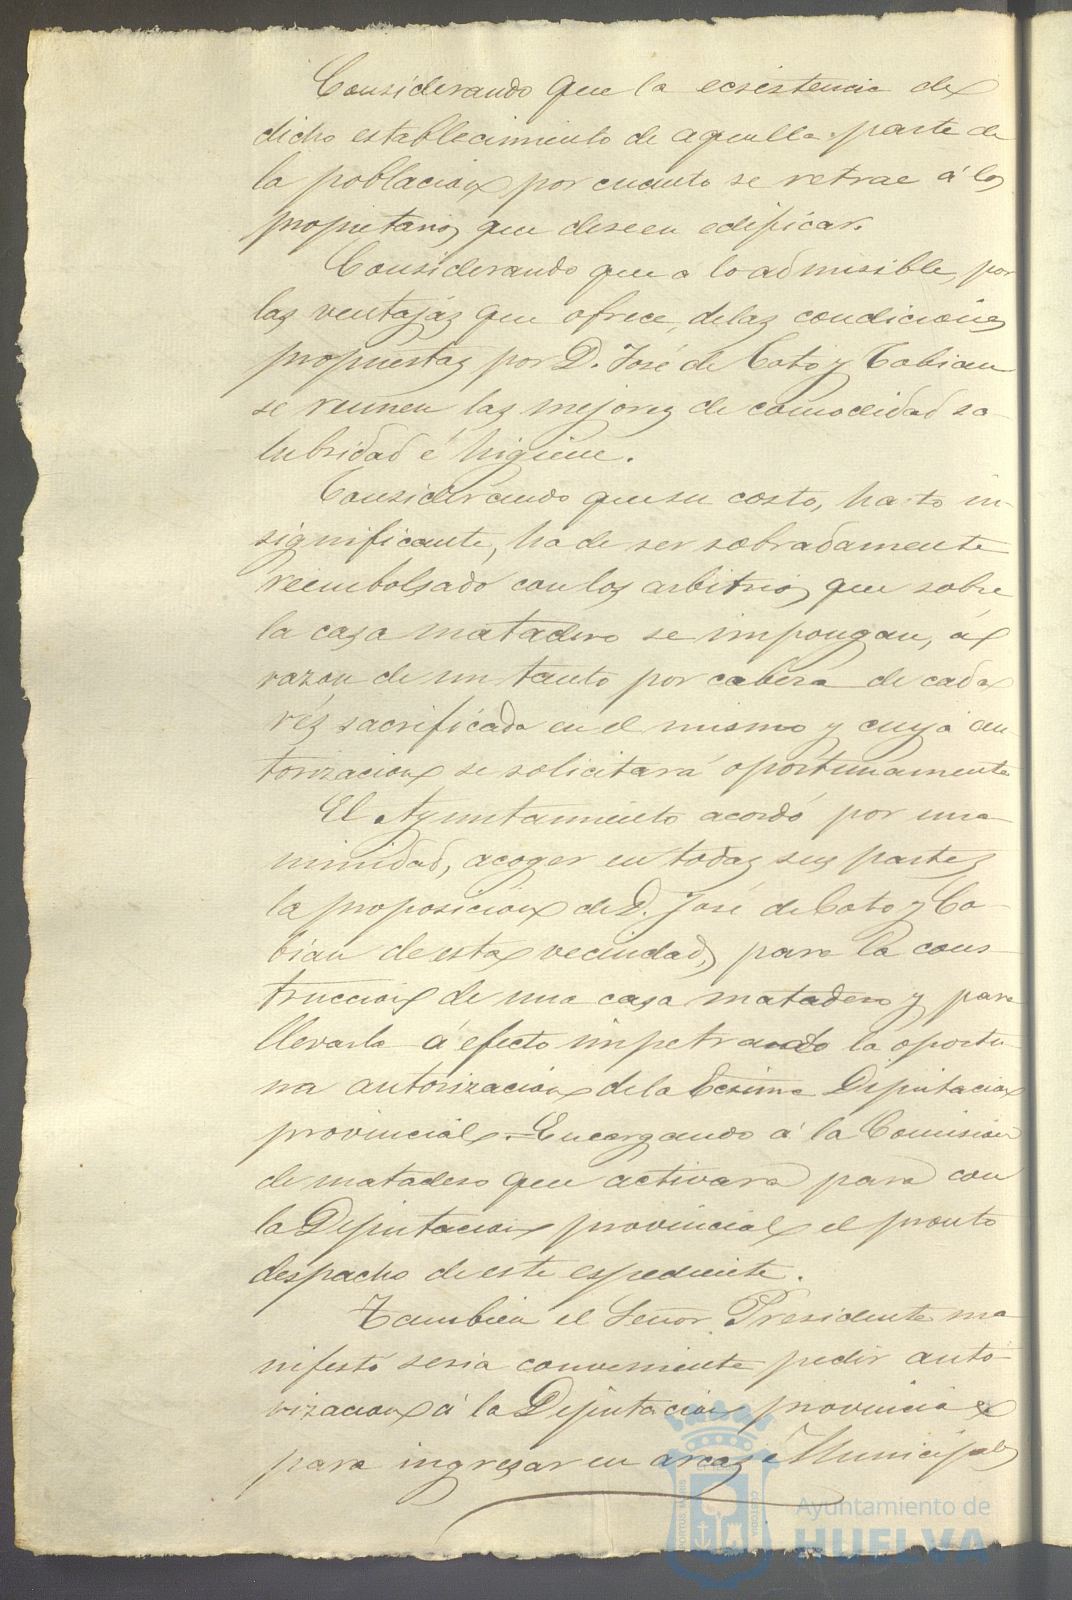 Considerando que la ecsistencia de
dicho establecimiento de aquella parte de
la poblacion por cuanto se retrae á los
propietarios que deseen edificar.
Considerando que á lo admisible, por
las ventajas que ofrece, de las condiciones
propuestas por D. José de Coto y Cobian
se reunen las mejores de comodidad sa-
lubridad é higiene.
Considerando que su costo, harto in-
significante, ha de ser sobradamente
reembolsado con los arbitrios que sobre
la casa matadero se impongan, á
razon de un tanto por cabeza de cada
rés sacrificada en el mismo y cuya au-
torizacion se solicitará oportunamente
El Ayuntamiento acordó por una-
nimidad, acoger en todas sus partes
la proposicion de D. José de Coto y Co-
bian de esta vecindad, para la cons-
truccion de una casa matadero y para
llevarla á efecto impetrando la oportu-
na autorizacion de la Ecsima Diputacion
provincial.=Encargando á la Comision
de matadero que activara para con
la Diputacion provincial el pronto
despacho de este espediente.
Tambien el Señor Presidente ma-
nifestó seria conveniente pedir auto-
rizacion á la Diputacion provincial
para ingresar en arcas Municipales
Ayuntamiento de
HUELVA
PORTUS MARIS
CUSTODIA